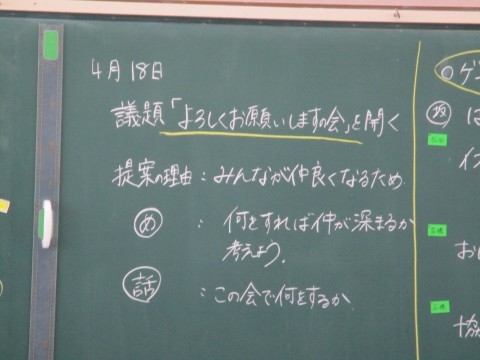 4月18日
議題「よろしくお願いしますの会」を開く
提案の理由：みんなが仲良くなるため
め：何をすれば仲が深まるか
考えよう。
話：この会で何をするか
○ゲ
は
イス
お
協